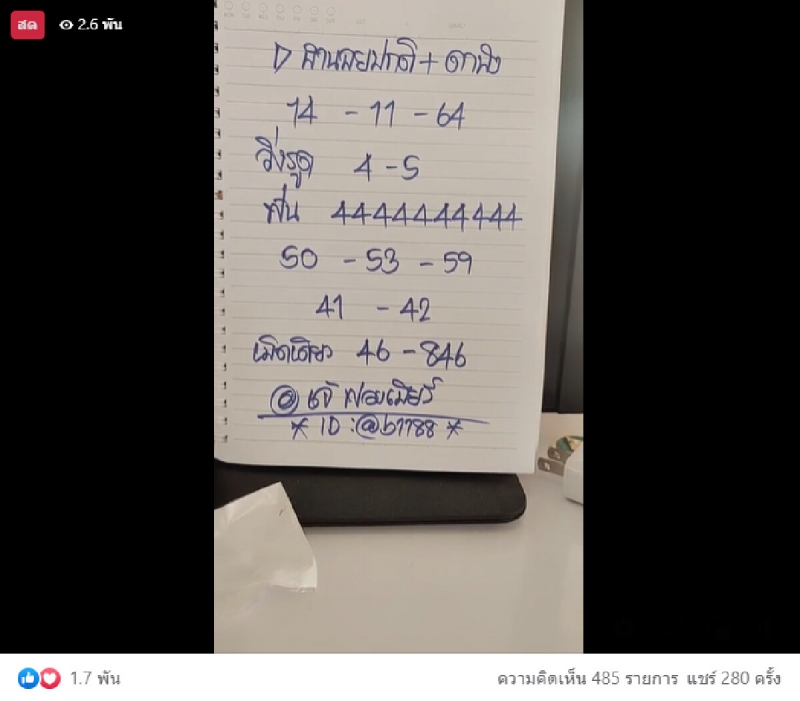 สด 2.6 พัน
D ฮานอยปกติ + ดานัง
14 - 11 - 64
วิ่งรูด 4 - 5
ฟัน 4444444444
50 - 53 - 59
41 - 42
เม็ดเดียว 46 - 846
@ เจ๊ฟองเบียร์
* ID : @b1188 *
1.7 พัน
ความคิดเห็น 485 รายการ แชร์ 280 ครั้ง